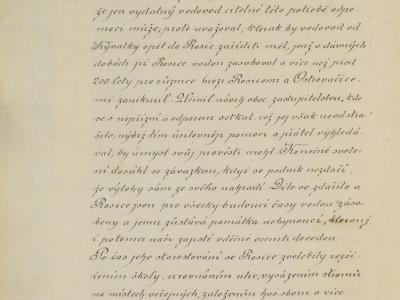 že jen vydatný vodovod citelné této potřebě odpo-
moci může, proto uvažoval, kterak by vodovod od
Krývalky opět do Rosic zaříditi měl, jenž v dávných
dobách již Rosice vodou zásoboval a více než před
200 lety pro různice mezi Rosicemi a Ostrovačice-
mi zaniknul. Učinil návrh obec. zastupitelstvu, kde
se s nepřízní a odporem setkal, což jej však neodstra-
šilo, nýbrž tím úsilovněji pomoci a přátel vyhledá-
val, by úmysl svůj provésti mohl. Konečně svole-
ní dosáhl se závazkem, když se podnik nezdaří,
že výlohy sám ze svého nahradí. Dílo se zdařilo a
Rosice jsou pro všecky budoucí časy vodou záso-
beny a jemu zůstává památka nehynoucí, kterouž
i potomci naši zajisté vděčně oceniti dovedou.
Po čas jeho starostování se Rosice zvelebily rozší-
řením školy, urovnáním ulic, vysázením stromů
na místech veřejných, založením has. sboru a více